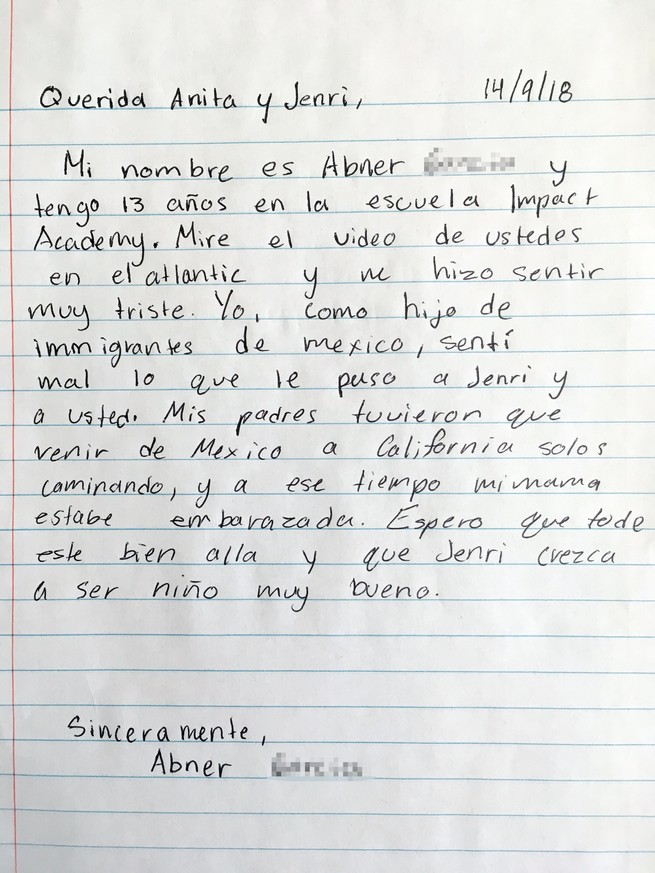 Querida Anita y Jenri, 14/9/18
Mi nombre es Abner y
tengo 13 años en la escuela Impact
Academy. Mire el video de ustedes
en el atlantic y me hizo sentir
muy triste. Yo, como hijo de
immigrantes de mexico, sentí
mal lo que le paso a Jenri y
a usted. Mis padres tuvieron que
venir de Mexico a California solos
caminando, y a ese tiempo mi mama
estabe embarazada. Espero que tode
este bien alla y que Jenri crezca
a ser niño muy bueno.
Sinceramente,
Abner